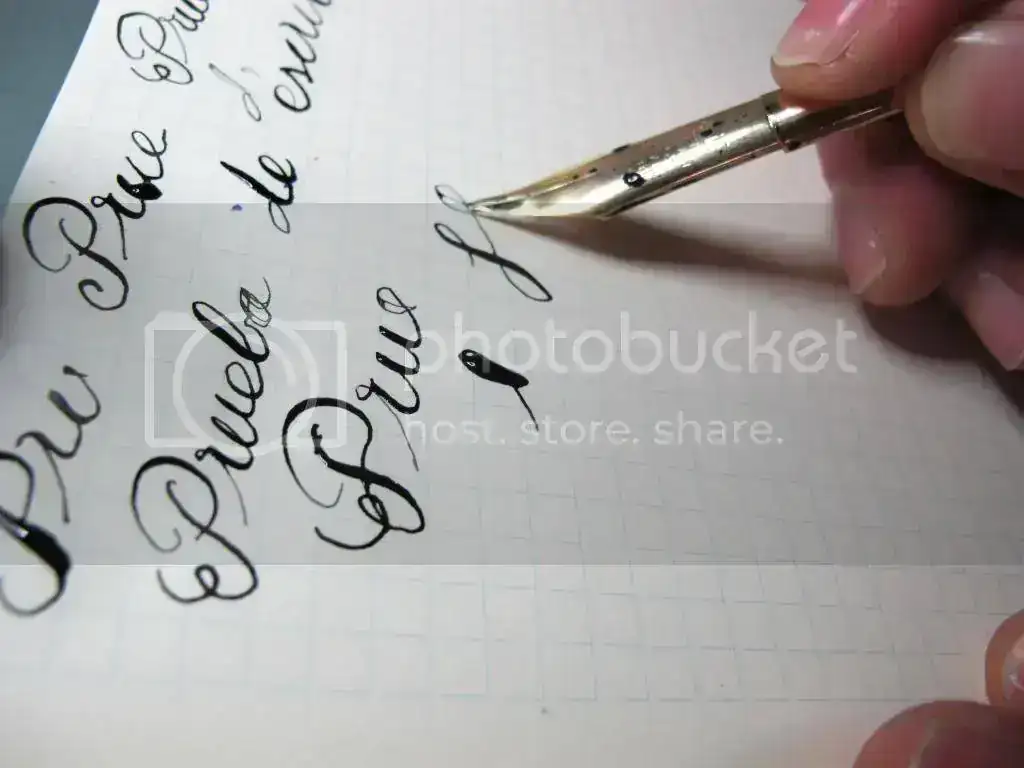 Pru Prue Pru
Prueba de
Prue
photobucket
host. store. share.